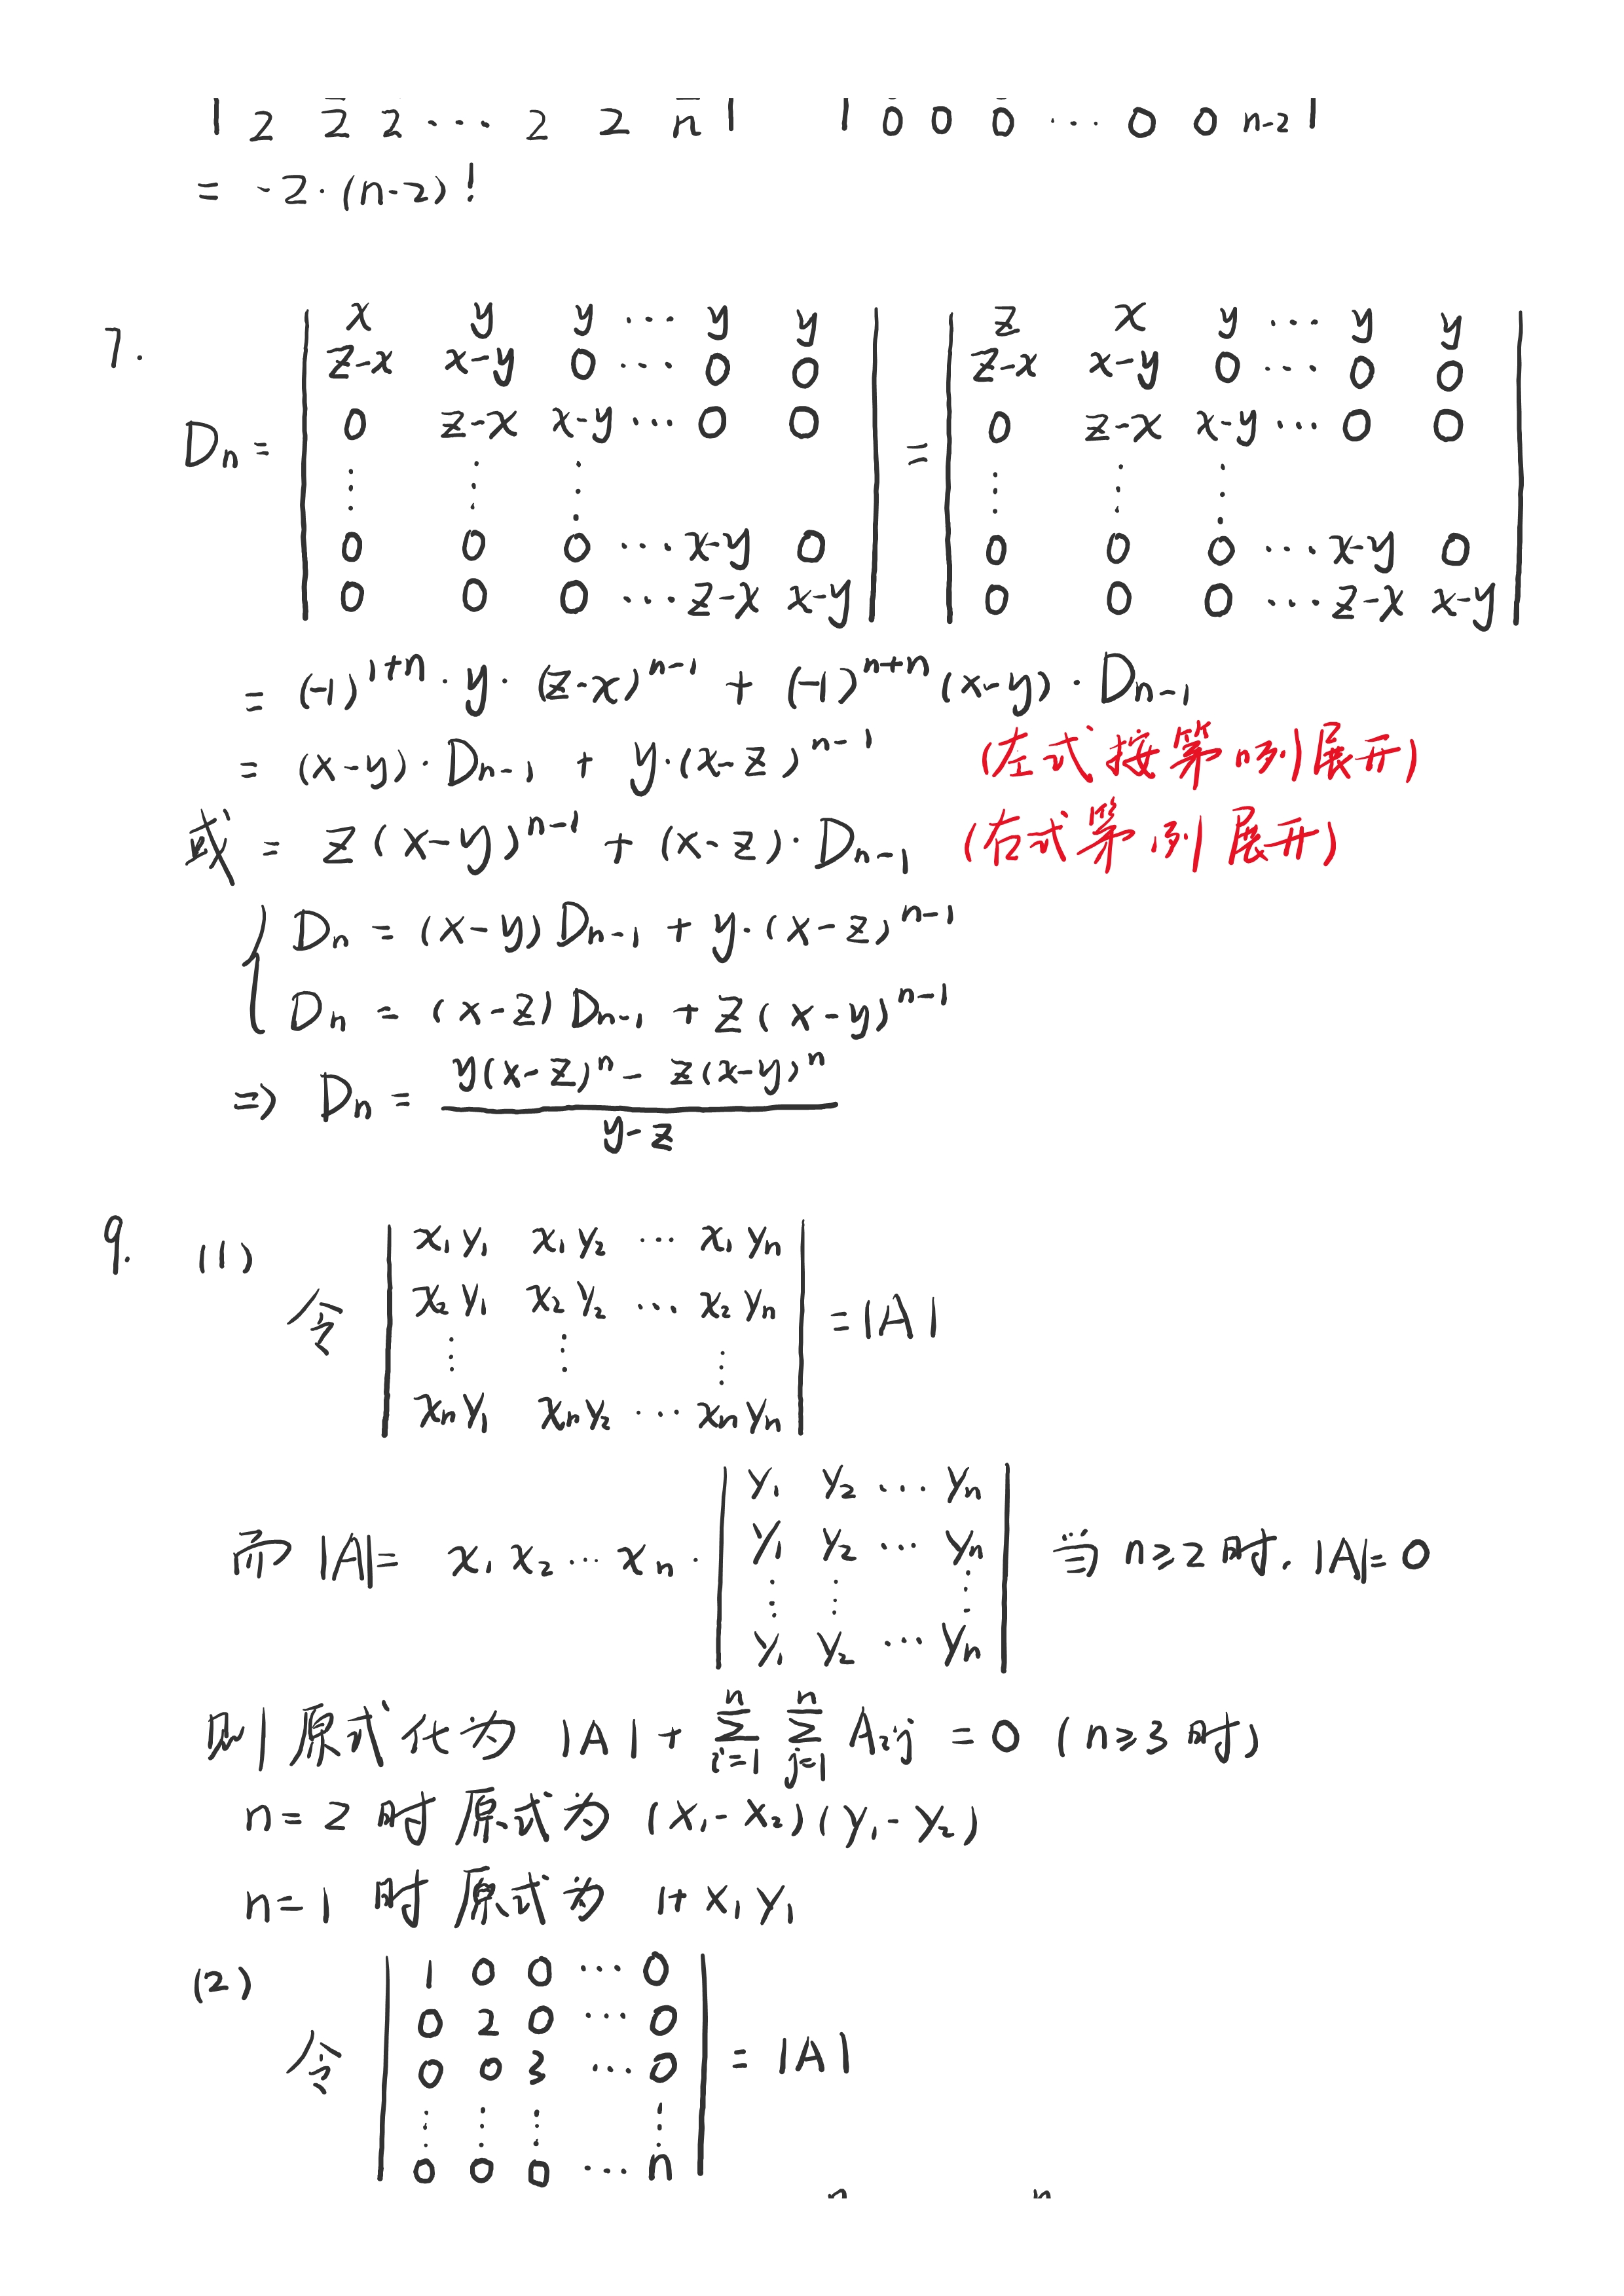 | 2 2 2 ⋯ 2 2 n | | 0 0 0 ⋯ 0 0 n-2 |
= -2·(n-2)!
7.
D_n = | x y y ⋯ y y | = | z x y ⋯ y y |
| z-x x-y 0 ⋯ 0 0 | | z-x x-y 0 ⋯ 0 0 |
| 0 z-x x-y ⋯ 0 0 | | 0 z-x x-y ⋯ 0 0 |
| ⋮ ⋮ ⋮ | | ⋮ ⋮ ⋮ |
| 0 0 0 ⋯ x-y 0 | | 0 0 0 ⋯ x-y 0 |
| 0 0 0 ⋯ z-x x-y | | 0 0 0 ⋯ z-x x-y |
= (-1)^{1+n}·y·(z-x)^{n-1} + (-1)^{n+n}(x-y)·D_{n-1}
= (x-y)·D_{n-1} + y·(x-z)^{n-1} (左式按第n列展开)
或 = z(x-y)^{n-1} + (x-z)·D_{n-1} (右式第1列展开)
{ D_n = (x-y)D_{n-1} + y·(x-z)^{n-1}
D_n = (x-z)D_{n-1} + z(x-y)^{n-1}
⇒ D_n = \frac{y(x-z)^n - z(x-y)^n}{y-z}
9. (1)
令 | x_1y_1 x_1y_2 ⋯ x_1y_n |
| x_2y_1 x_2y_2 ⋯ x_2y_n | = |A|
| ⋮ ⋮ ⋮ |
| x_ny_1 x_ny_2 ⋯ x_ny_n |
而 |A| = x_1x_2⋯x_n· | y_1 y_2 ⋯ y_n | 当n≥2时, |A|=0
| y_1 y_2 ⋯ y_n |
| ⋮ ⋮ ⋮ |
| y_1 y_2 ⋯ y_n |
则原式化为 |A| + \sum_{i=1}^{n} \sum_{j=1}^{n} A_{ij} = 0 (n≥3时)
n=2 时原式为 (x_1-x_2)(y_1-y_2)
n=1 时原式为 1+x_1y_1
(2)
令 | 1 0 0 ⋯ 0 |
| 0 2 0 ⋯ 0 |
| 0 0 3 ⋯ 0 | = |A|
| ⋮ ⋮ ⋮ ⋮ |
| 0 0 0 ⋯ n |